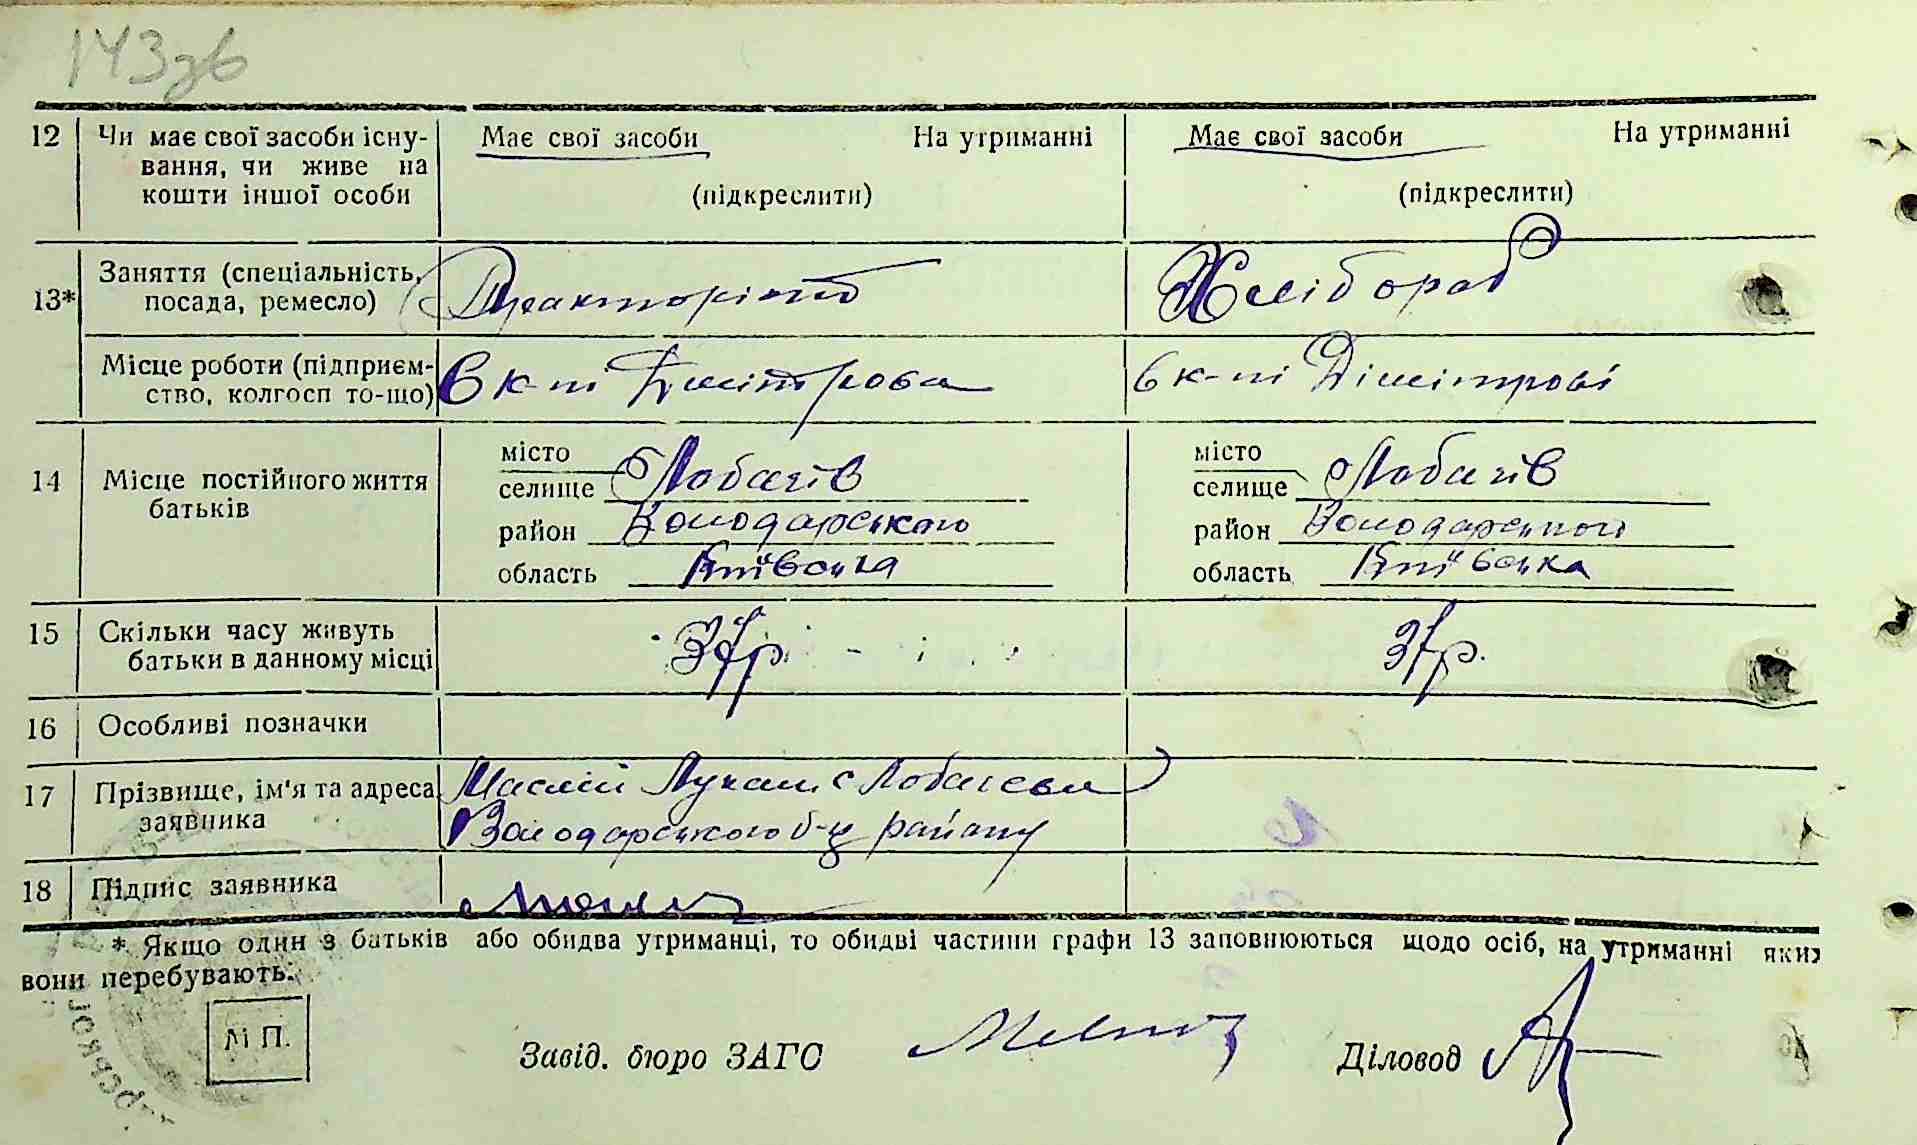 143зв
12 Чи має свої засоби існу- Має свої засоби На утриманні Має свої засоби На утриманні
вання, чи живе на
кошти іншої особи (підкреслити) (підкреслити)
13* Заняття (спеціальність, Тракторіст Хлібороб
посада, ремесло)
Місце роботи (підприєм- в к-пі Дмітрова в к-пі Дімітрові
ство, колгосп то-що)
14 Місце постійного життя місто місто
батьків селище Лобачів селище Лобачів
район Володарського район Володарського
область Київська область Київська
15 Скільки часу живуть
батьки в данному місці
16 Особливі позначки
17 Прізвище, ім'я та адреса с Лобачева
заявника Володарського району
18 Підпис заявника
* Якщо один з батьків або обидва утриманці, то обидві частини графи 13 заповнюються щодо осіб, на утриманні яких
вони перебувають.
М П.
Завід. бюро ЗАГС Діловод